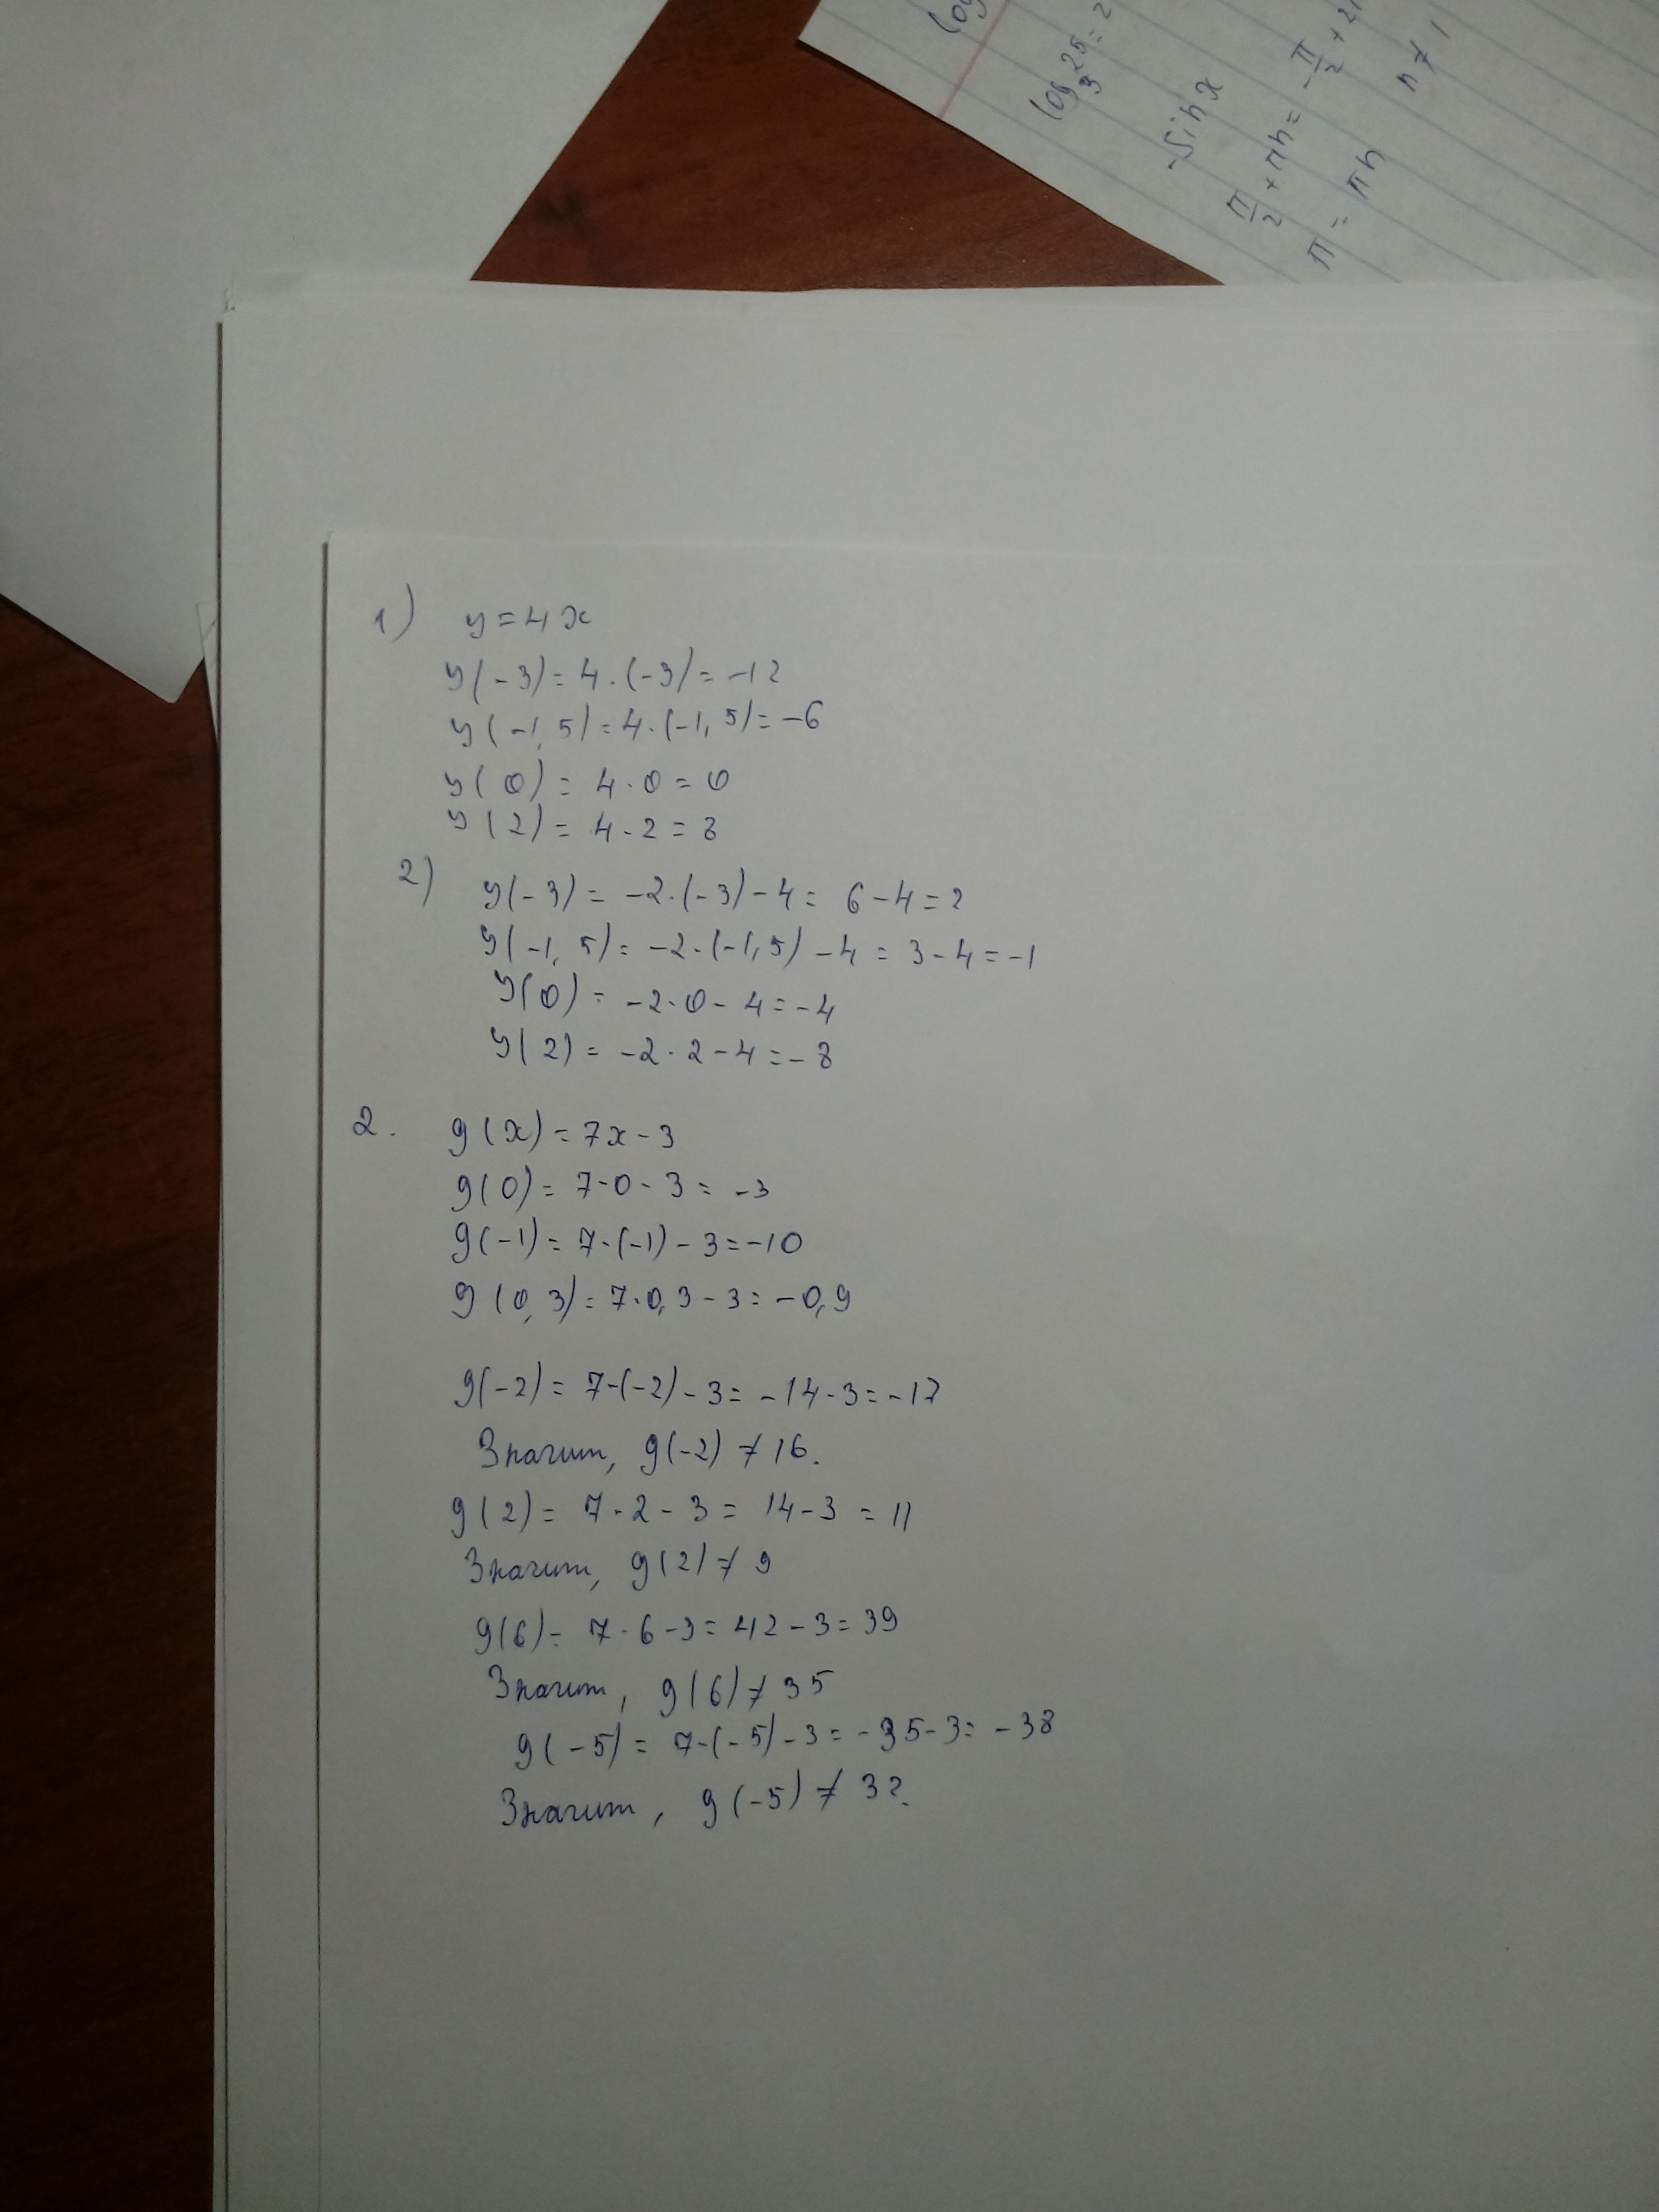 log₃25=2
-sin x
π/2+πn=-π/2+2π
π=πn
n≠1
1) y=4x
y(-3)=4·(-3)=-12
y(-1,5)=4·(-1,5)=-6
y(0)=4·0=0
y(2)=4·2=8
2) y(-3)=-2·(-3)-4=6-4=2
y(-1,5)=-2·(-1,5)-4=3-4=-1
y(0)=-2·0-4=-4
y(2)=-2·2-4=-8
2. g(x)=7x-3
g(0)=7·0-3=-3
g(-1)=7·(-1)-3=-10
g(0,3)=7·0,3-3=-0,9
g(-2)=7·(-2)-3=-14-3=-17
Значит, g(-2)≠16.
g(2)=7·2-3=14-3=11
Значит, g(2)≠9
g(6)=7·6-3=42-3=39
Значит, g(6)≠35
g(-5)=7·(-5)-3=-35-3=-38
Значит, g(-5)≠32.